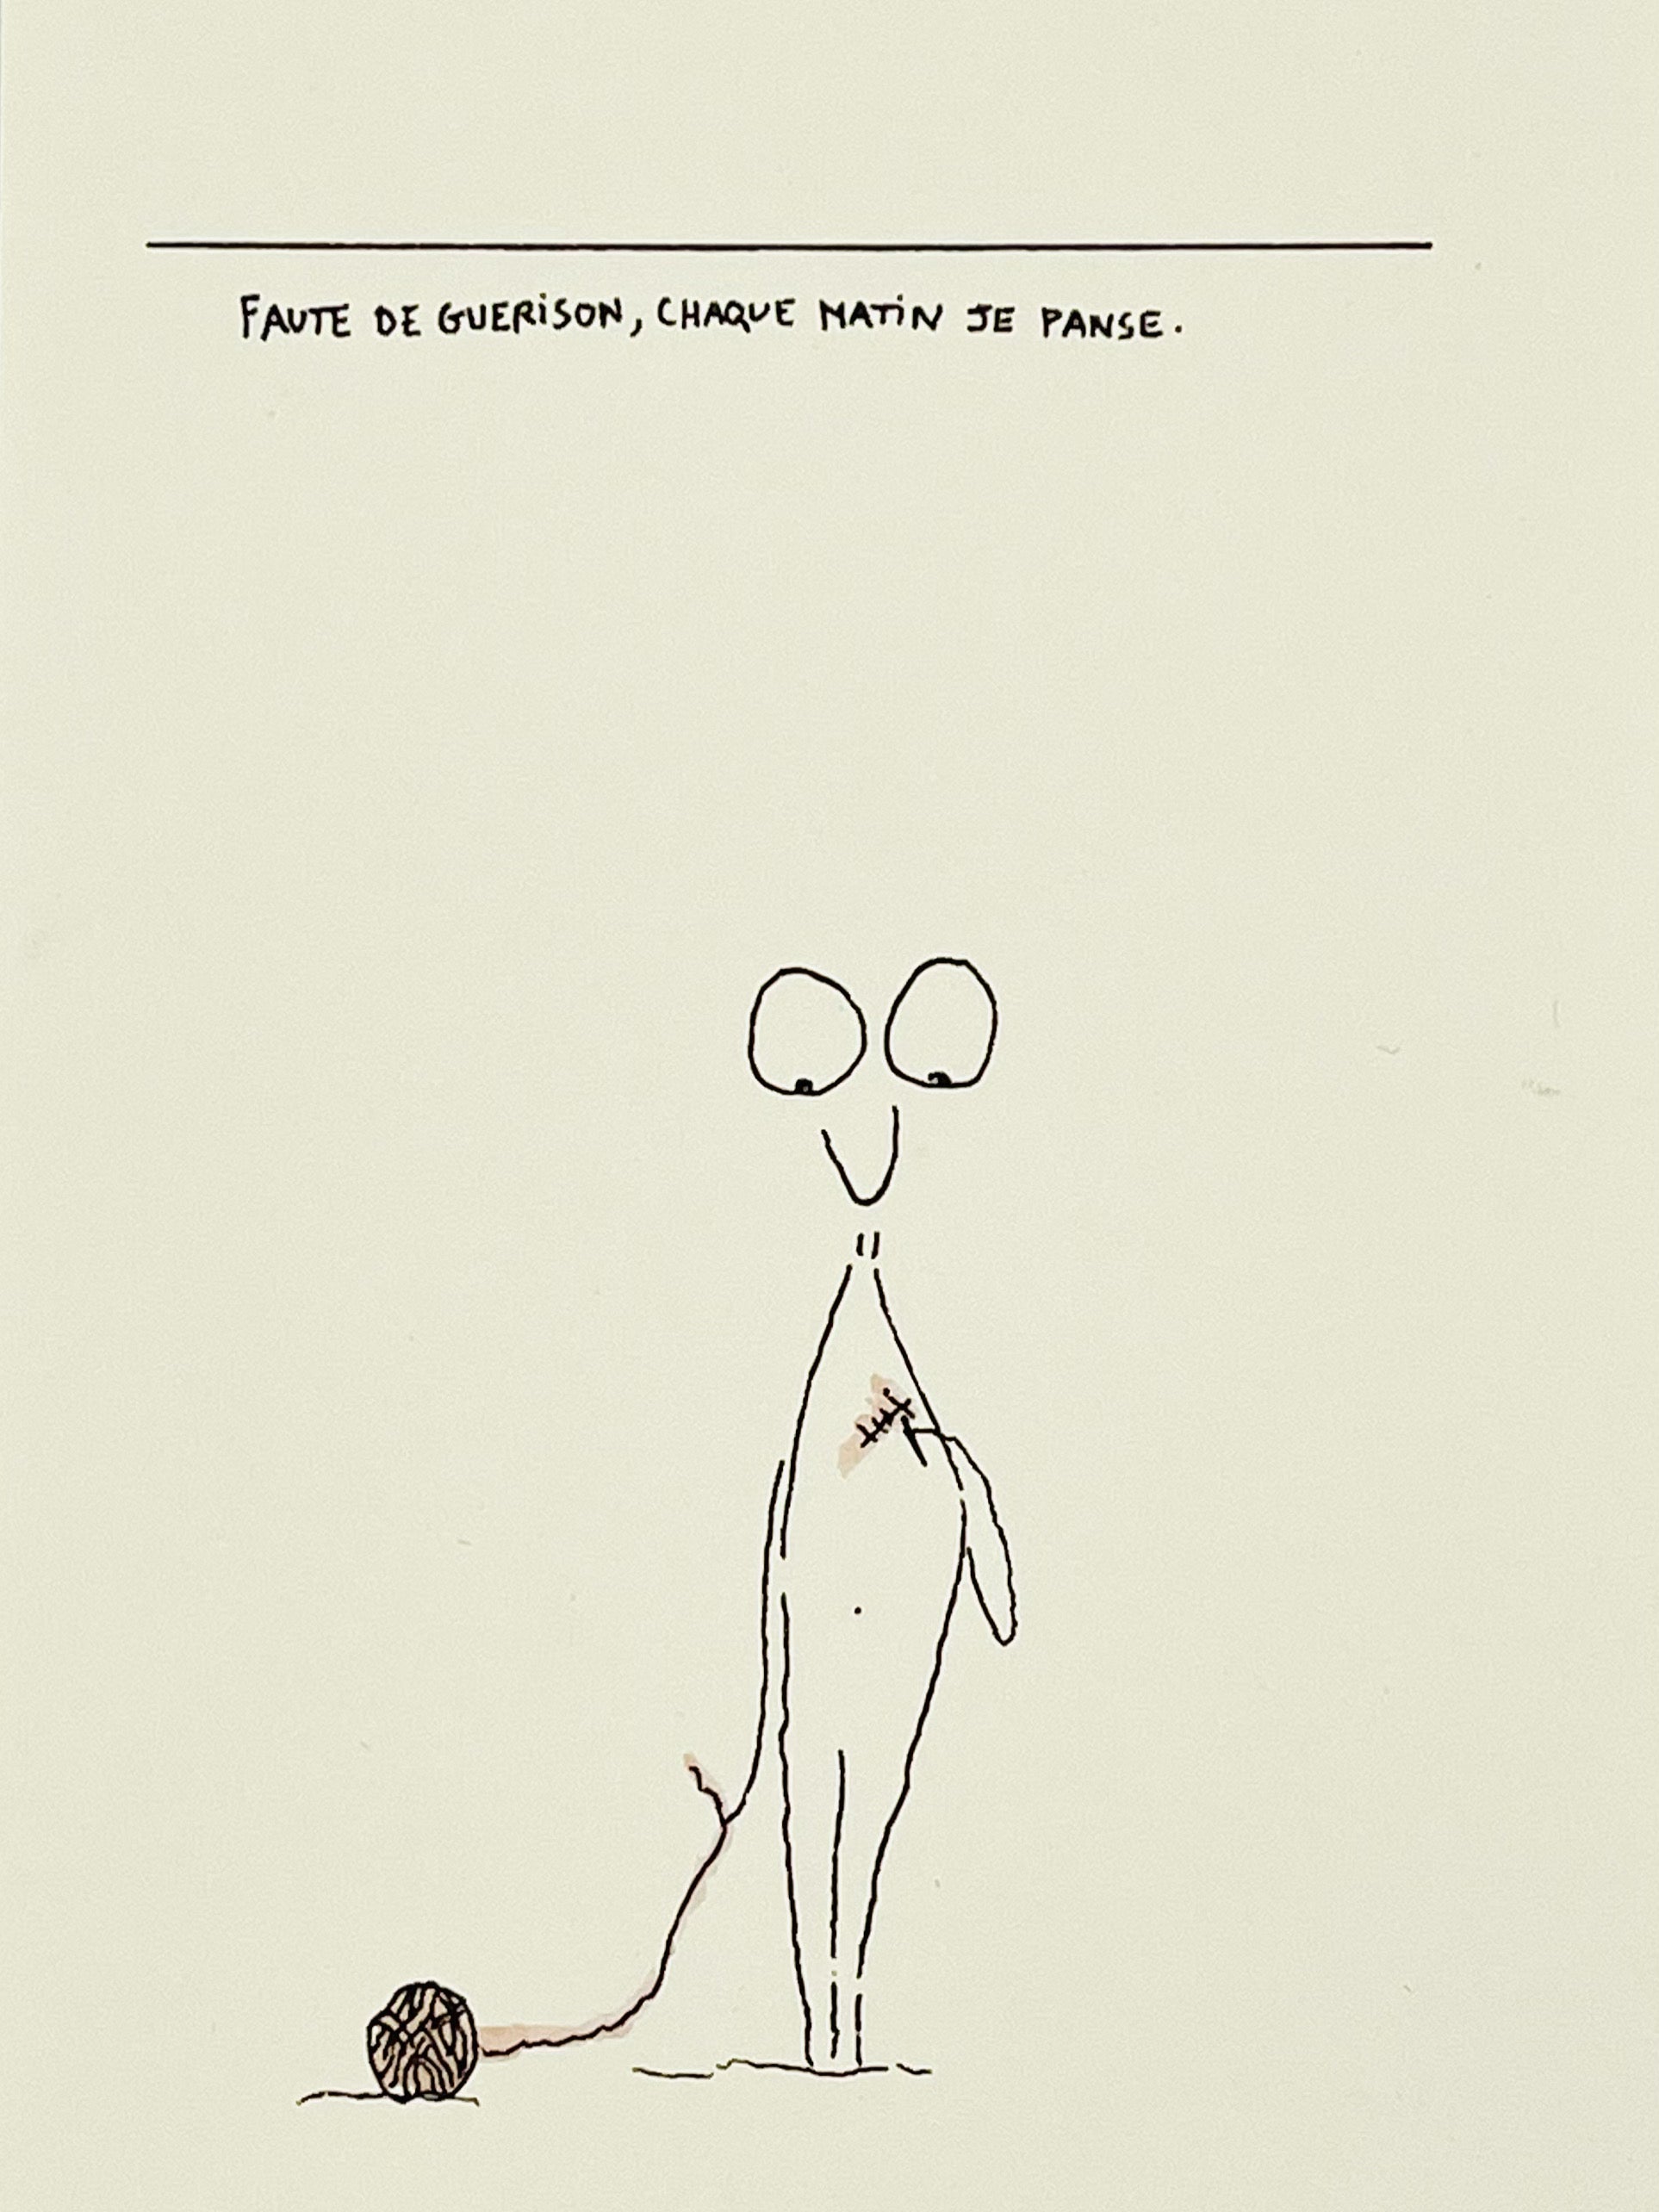 FAUTE DE GUERiSON, CHAQUE MATiN JE PANSE.